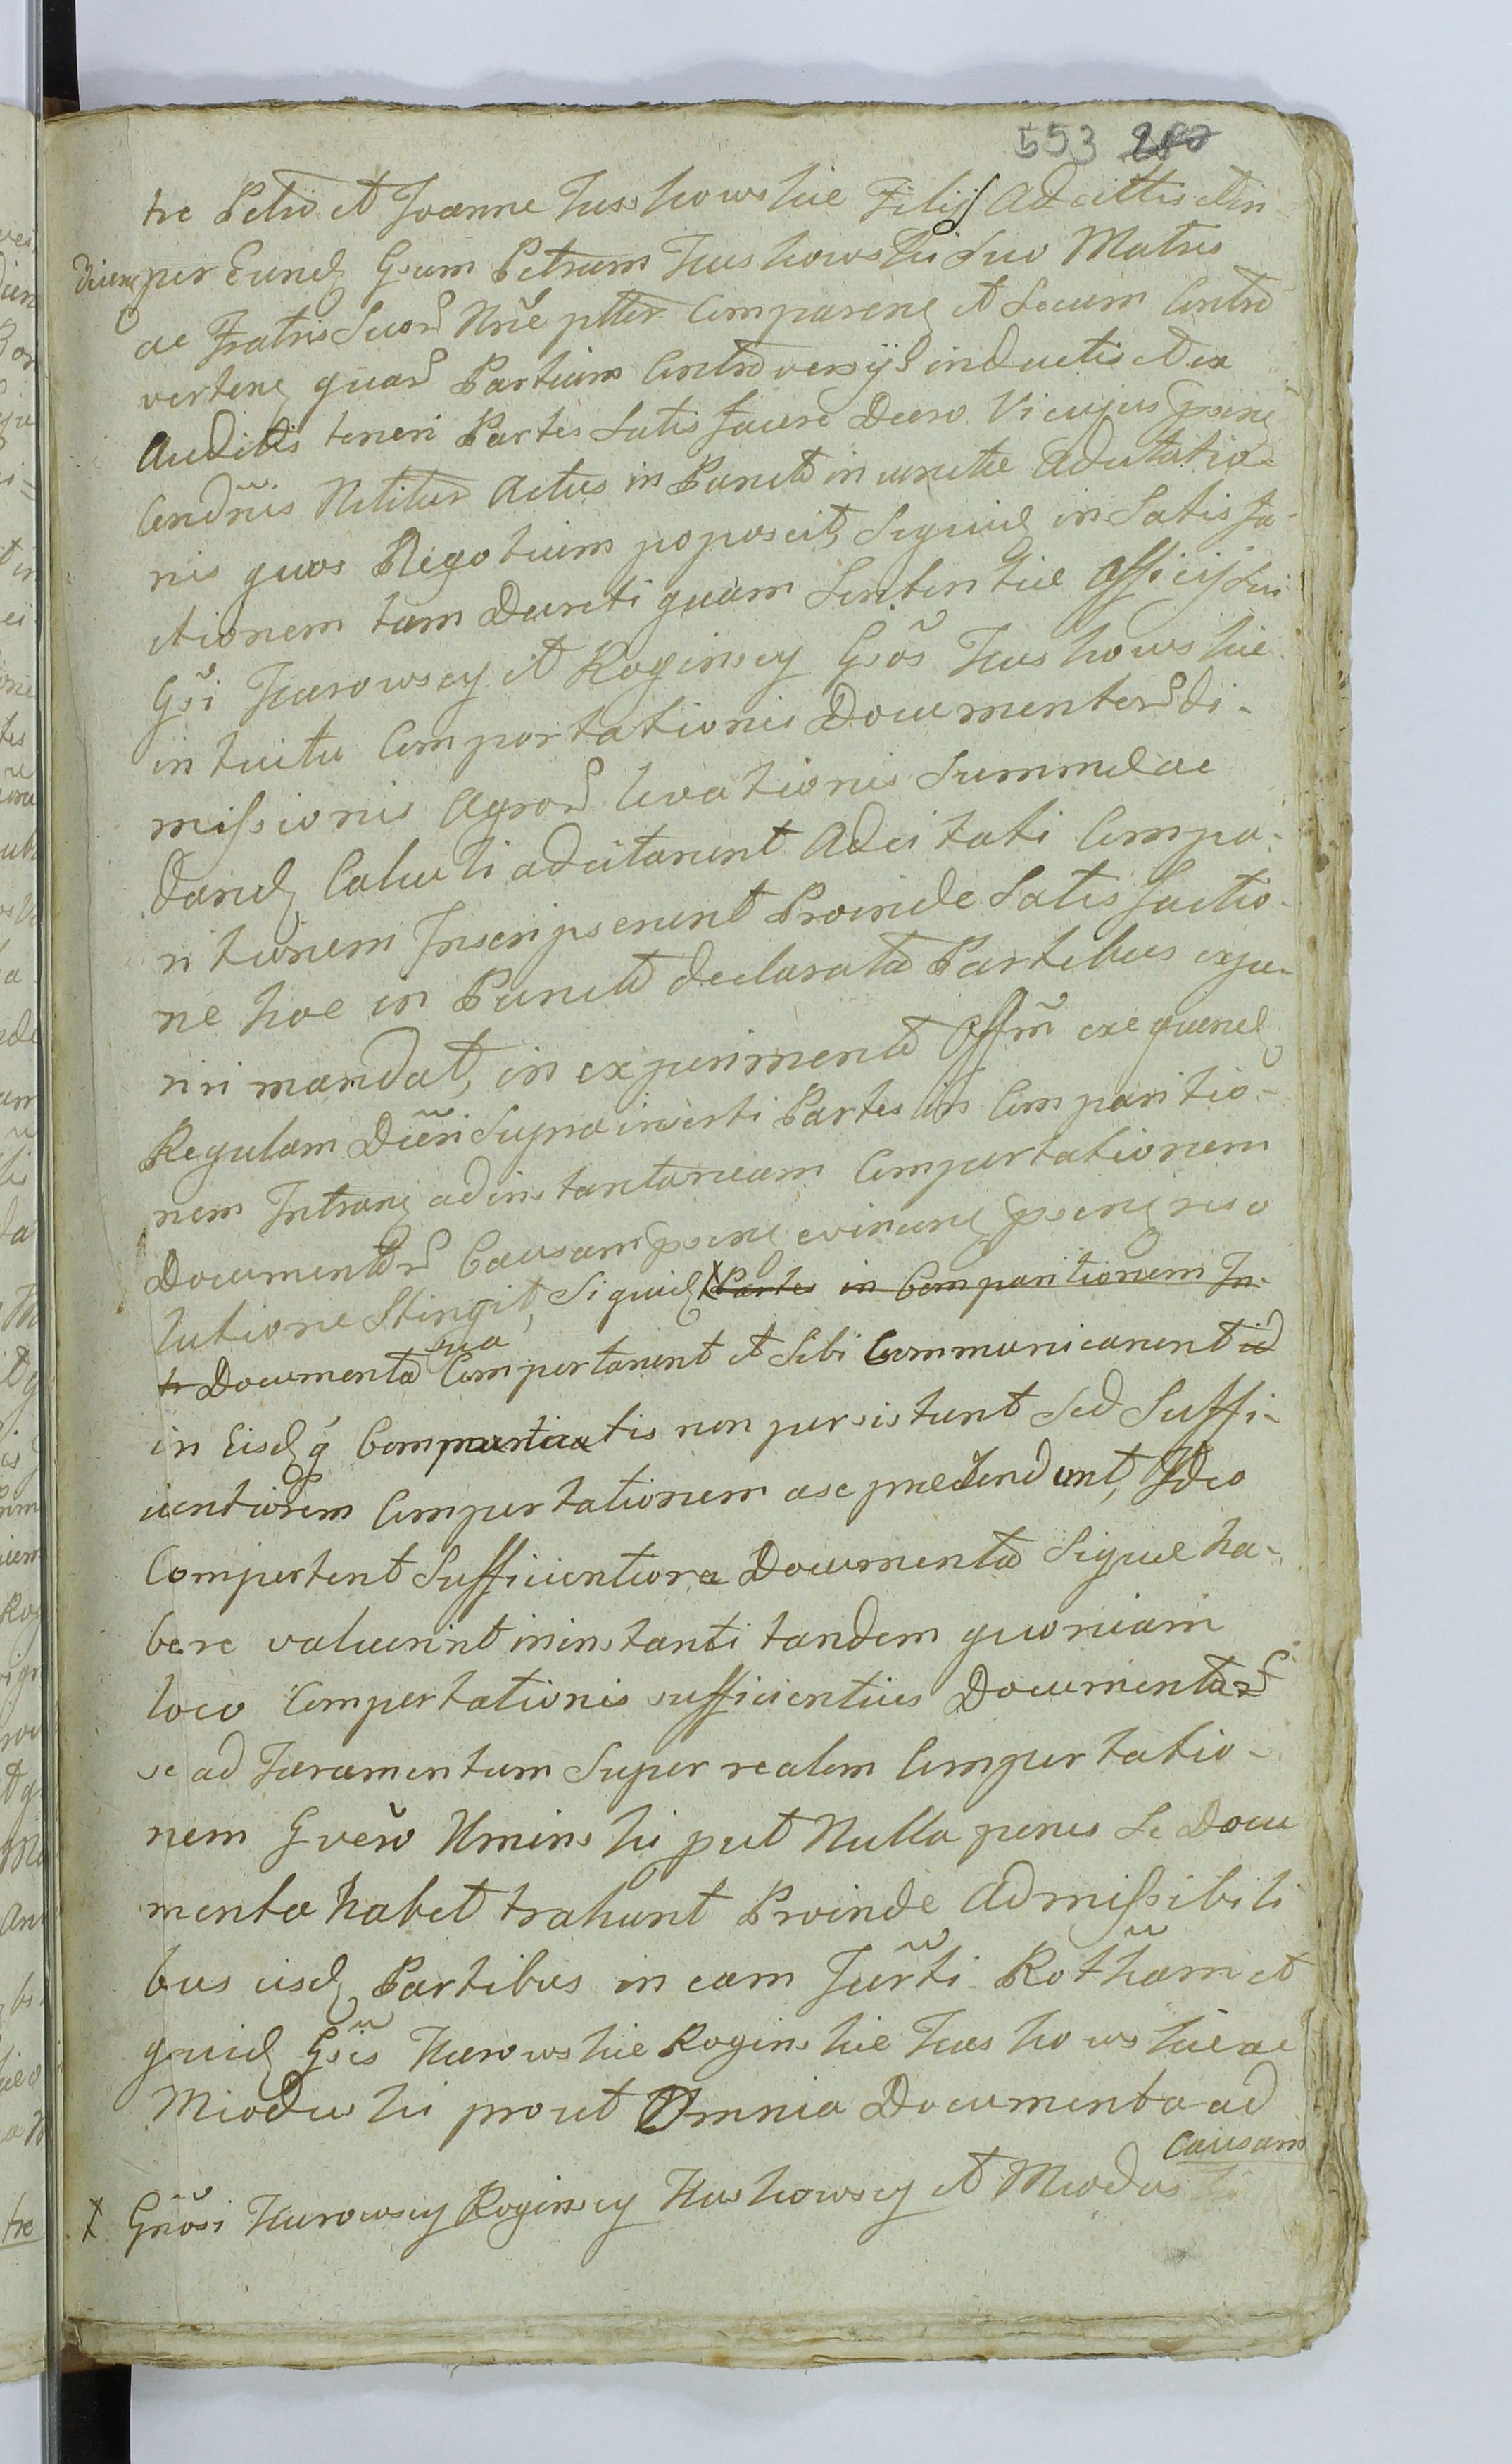 553 280
tre Petro et Joanne Kuszkowskie Filijs Adcittis etin
per Eund Gsum Petrum Kuskowski suo Matris
ac Fratris Suor Nrie ptter Comparen et Secum Contro
verten quar Partium Controversijs inductis et ex
Auditis teneri Partes Satis facere Decro Vi cujus
Condnis Nititur Actus in Puncto in cunctae Adcitatio
nis quos Negotium poposcit, Siquid in Satis fa
ctionem tam Decreti quam Sententiae Officij sui
Gsi Kurowscy et Roginscy Gsos Kuskowskie
intuitu Comportationis Documentor di-
missionis Agror levationis Summae ac
Dand Calculi adcitarunt Adcitati Compa-
ritionem Inscripserunt Proinde Satis factio-
ne hoc in Puncto declarata Partibus exju-
niri mandat, in experimento Offm exequend
Regulam Dcri Suprainserti Partes in Comparitio-
nem Intran ad instantaneam Comportationem
Documentor Causam evincen reso
lutione Stingit, Siquid X Partes in Comparitionem In-
tr Documenta sua Comportarunt et Sibi Communicarunt id
in Eisd q Comportatis non persistunt Sed Suffi-
cientiorem Comportationem a se praetendunt, Ideo
Comportent Sufficientiora Documenta Siquae ha-
bere voluerint in instanti tandem quoniam
loco Comportationis sufficientius Documentor
se ad Juramentum Super realem Comportatio-
nem Gvero Uminski put Nulla penes Se Docu
menta habet trahunt Proinde Admissibili
bus eisd Partibus in eam Jurti Rotham et
quid Gsis Kurowskie Roginskie Kuskowskie ac
Mioduski prout Omnia Documenta ad
Causam
X Gnosi Kurowscy Roginscy Kuskowscy et Miodus